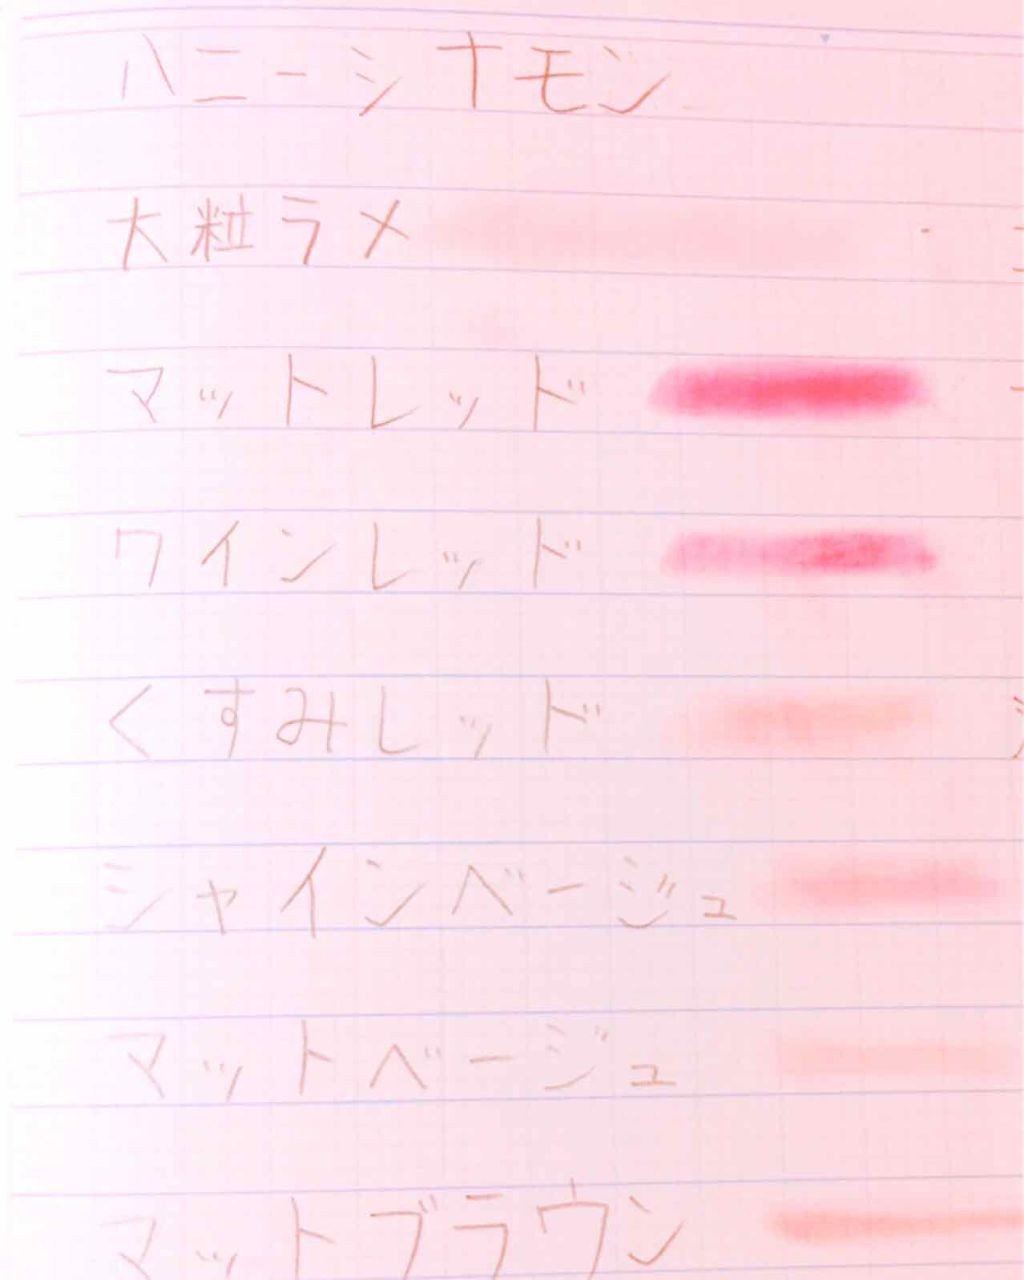 ハニーシナモン
大粒ラメ
マットレッド
ワインレッド
くすみレッド
シャインベージュ
マットベージュ
マットブラウン